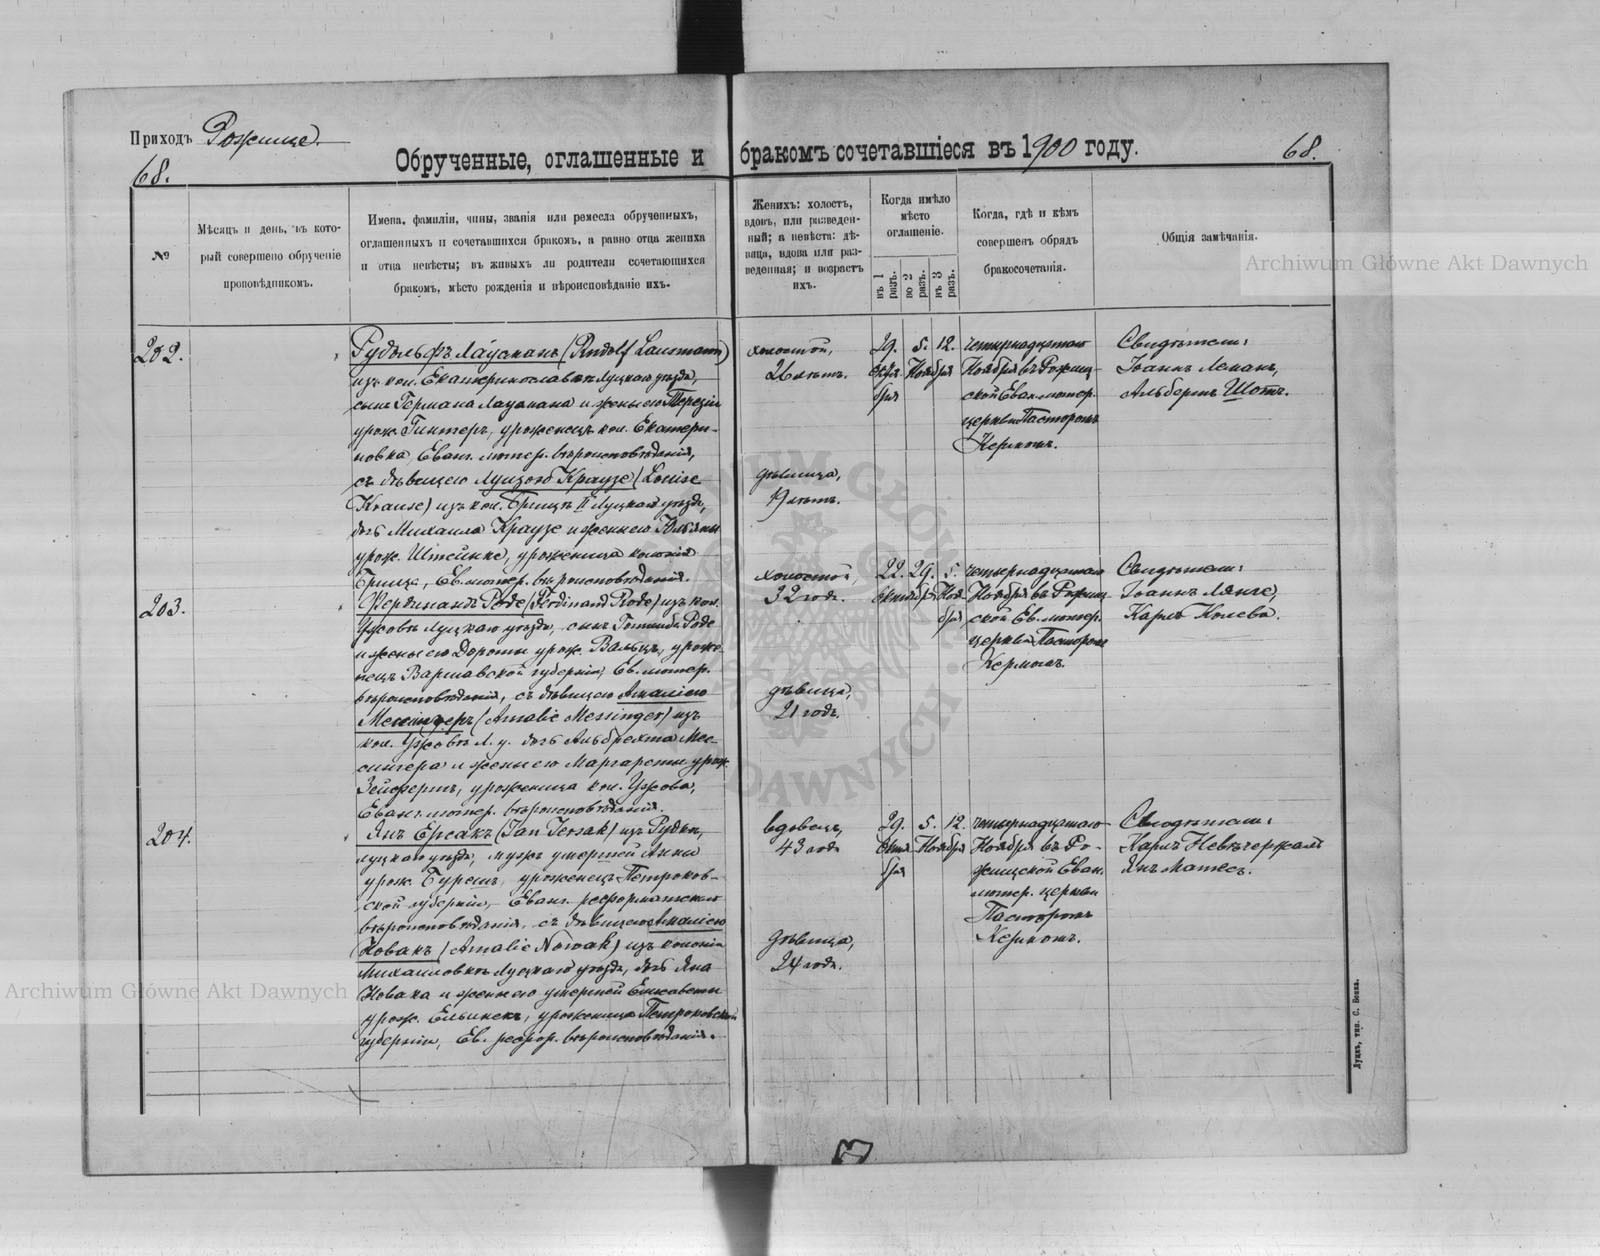 Приходъ Рожище.
68.
Обрученные, оглашенные и бракомъ сочетавшіеся въ 1900 году.
68.
№
Мѣсяцъ и день, въ кото-
рый совершено обрученіе
проповѣдникомъ.
Имена, фамиліи, чины, званія или ремесла обрученныхъ,
оглашенныхъ и сочетавшихся бракомъ, а равно отца жениха
и отца невѣсты; въ живыхъ ли родители сочетающихся
бракомъ, мѣсто рожденія и вѣроисповѣданіе ихъ.
Женихъ: холостъ,
вдовъ, или разведен-
ный; а невѣста: дѣ-
вица, вдова или раз-
веденная; и возрастъ
ихъ.
Когда имѣло
мѣсто
оглашеніе.
въ 1 разъ.
во 2 разъ.
въ 3 разъ.
Когда, гдѣ и кѣмъ
совершенъ обрядъ
бракосочетанія.
Общія замѣчанія.
202.
Рудольфъ Лаусманъ (Rudolf Lausmann)
изъ кол. Екатеринославкѣ Луцкаго уѣзда,
сынъ Германа Лаусмана и жены его Терезіи
урож. Гинтеръ, уроженецъ кол. Екатери-
новка, Еванг. лютер. вѣроисповѣданія,
съ дѣвицею Луизою Краузе (Louise
Krause) изъ кол. Брищъ II Луцкаго уѣзда,
дочь Михаила Краузе и жены его Юльяны
урож. Штейнке, уроженица колоніи
Брища, Ев. лютер. вѣроисповѣданія.
холостой,
26 лѣтъ.
дѣвица,
19 лѣтъ.
29. 5. 12.
Октя- Ноября
бря
четырнадцатаго
Ноября въ Рожищ-
ской Еван. лютер.
церкви Пасторомъ
Кермомъ.
Свидѣтели:
Іоаннъ Леманъ,
Альбертъ Шотъ.
203.
Фердинандъ Роде (Ferdinand Rode) изъ кол.
Ужовъ Луцкаго уѣзда, сынъ Готлиба Роде
и жены его Дороты урож. Вальцъ, уроже-
нецъ Варшавской губерніи, Ев. лютер.
вѣроисповѣданія, съ дѣвицею Амаліею
Мессингеръ (Amalie Messinger) изъ
кол. Ужовъ Л. у. дочь Альбрехта Мес-
сингера и жены его Маргареты урож.
Зейфертъ, уроженица кол. Ужова,
Еванг. лютер. вѣроисповѣданія.
холостой,
32 года.
дѣвица,
21 годъ.
22. 29. 5.
Октября Ноя-
бря
четырнадцатаго
Ноября въ Рожищ-
ской Ев. лютер.
церкви Пасторомъ
Кермомъ.
Свидѣтели:
Іоаннъ Лянге,
Карлъ Колева.
204.
Янъ Ерсакъ (Jan Jersak) изъ Рудки,
Луцкаго уѣзда, мужъ умершей Анны
урож. Бурешъ, уроженецъ Петроков-
ской губерніи, Еван. реформатскаго
вѣроисповѣданія, съ дѣвицею Амаліею
Новакъ (Amalie Nowak) изъ колоніи
Михаиловкѣ Луцкаго уѣзда, дочь Яна
Новака и жены его умершей Елисаветы
урож. Ельинекъ, уроженица Петроковской
губерніи, Ев. рефор. вѣроисповѣданія.
вдовецъ,
43 года
дѣвица,
24 года.
29. 5. 12.
Октя- Ноября
бря
четырнадцатаго
Ноября въ Ро-
жищской Еван.
лютер. церкви
Пасторомъ
Кермомъ.
Свидѣтели:
Карлъ Невечержалъ
Янъ Матесъ.
Луцкъ, тип. С. Бонка.
Archiwum Główne Akt Dawnych
Archiwum Główne Akt Dawnych